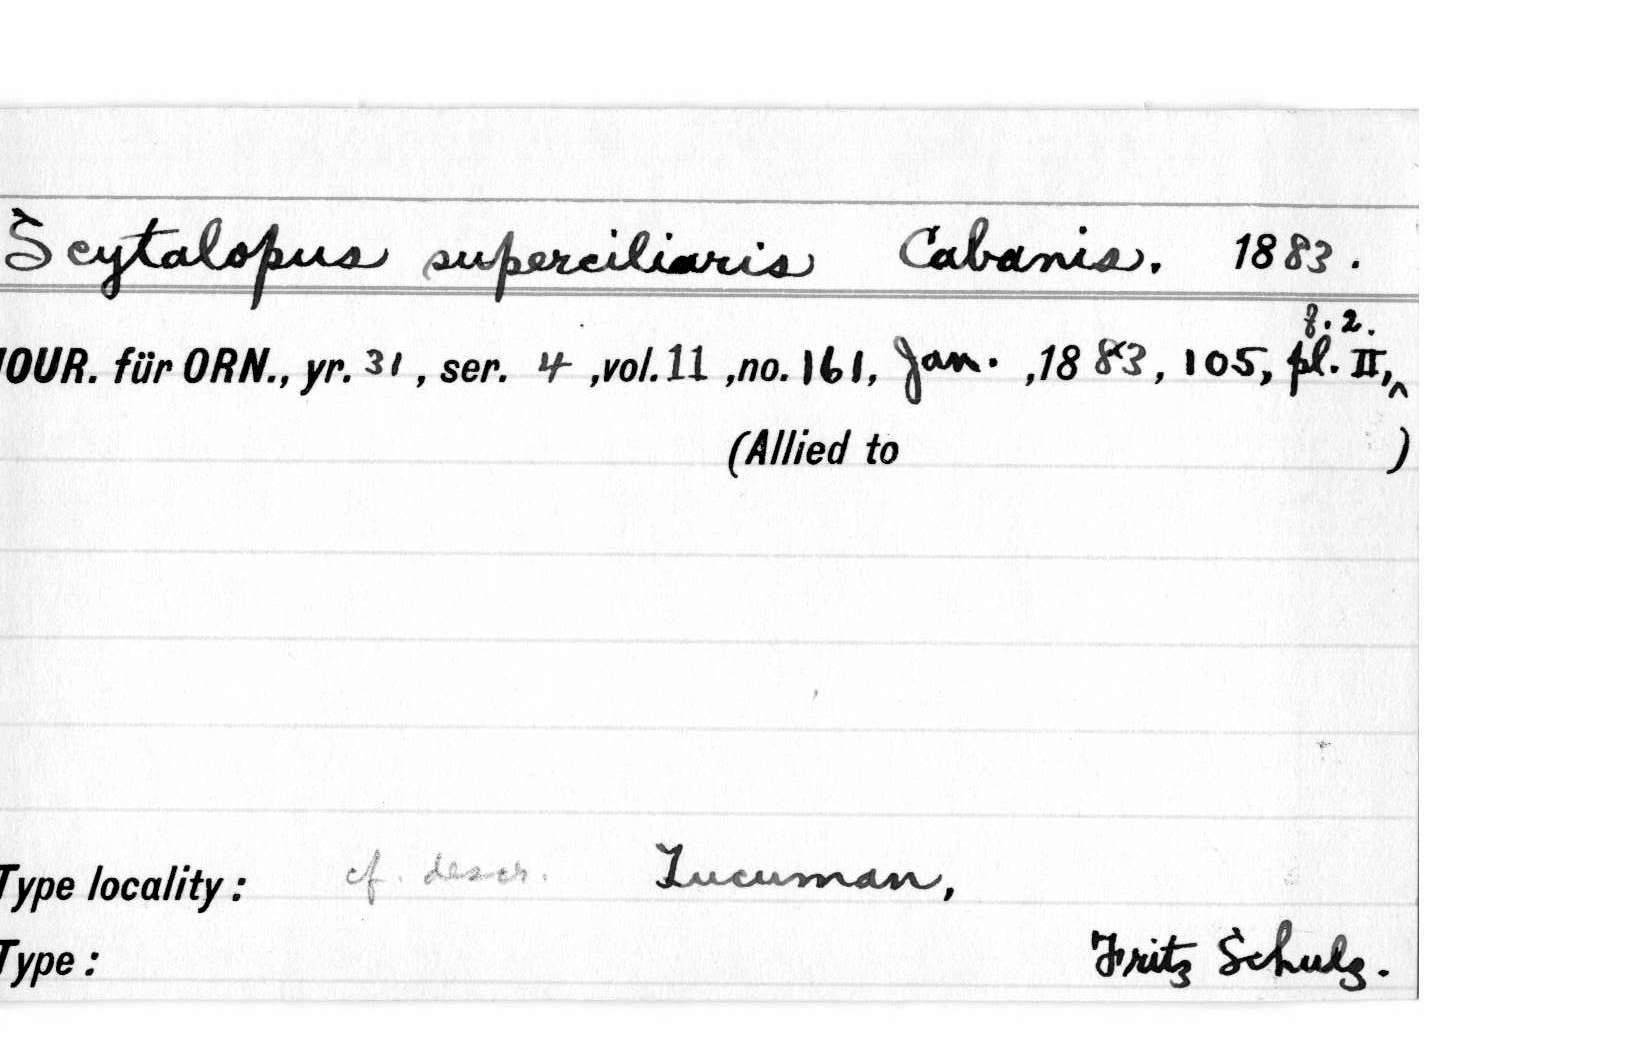 Scytalopus superciliaris Cabanis. 1883.
f. 2.
JOUR. für ORN., yr. 31, ser. 4, vol. 11, no. 161, Jan., 1883, 105, pl. II, ^
(Allied to )
Type locality: cf. descr. Tucuman,
Type: Fritz Schulz.